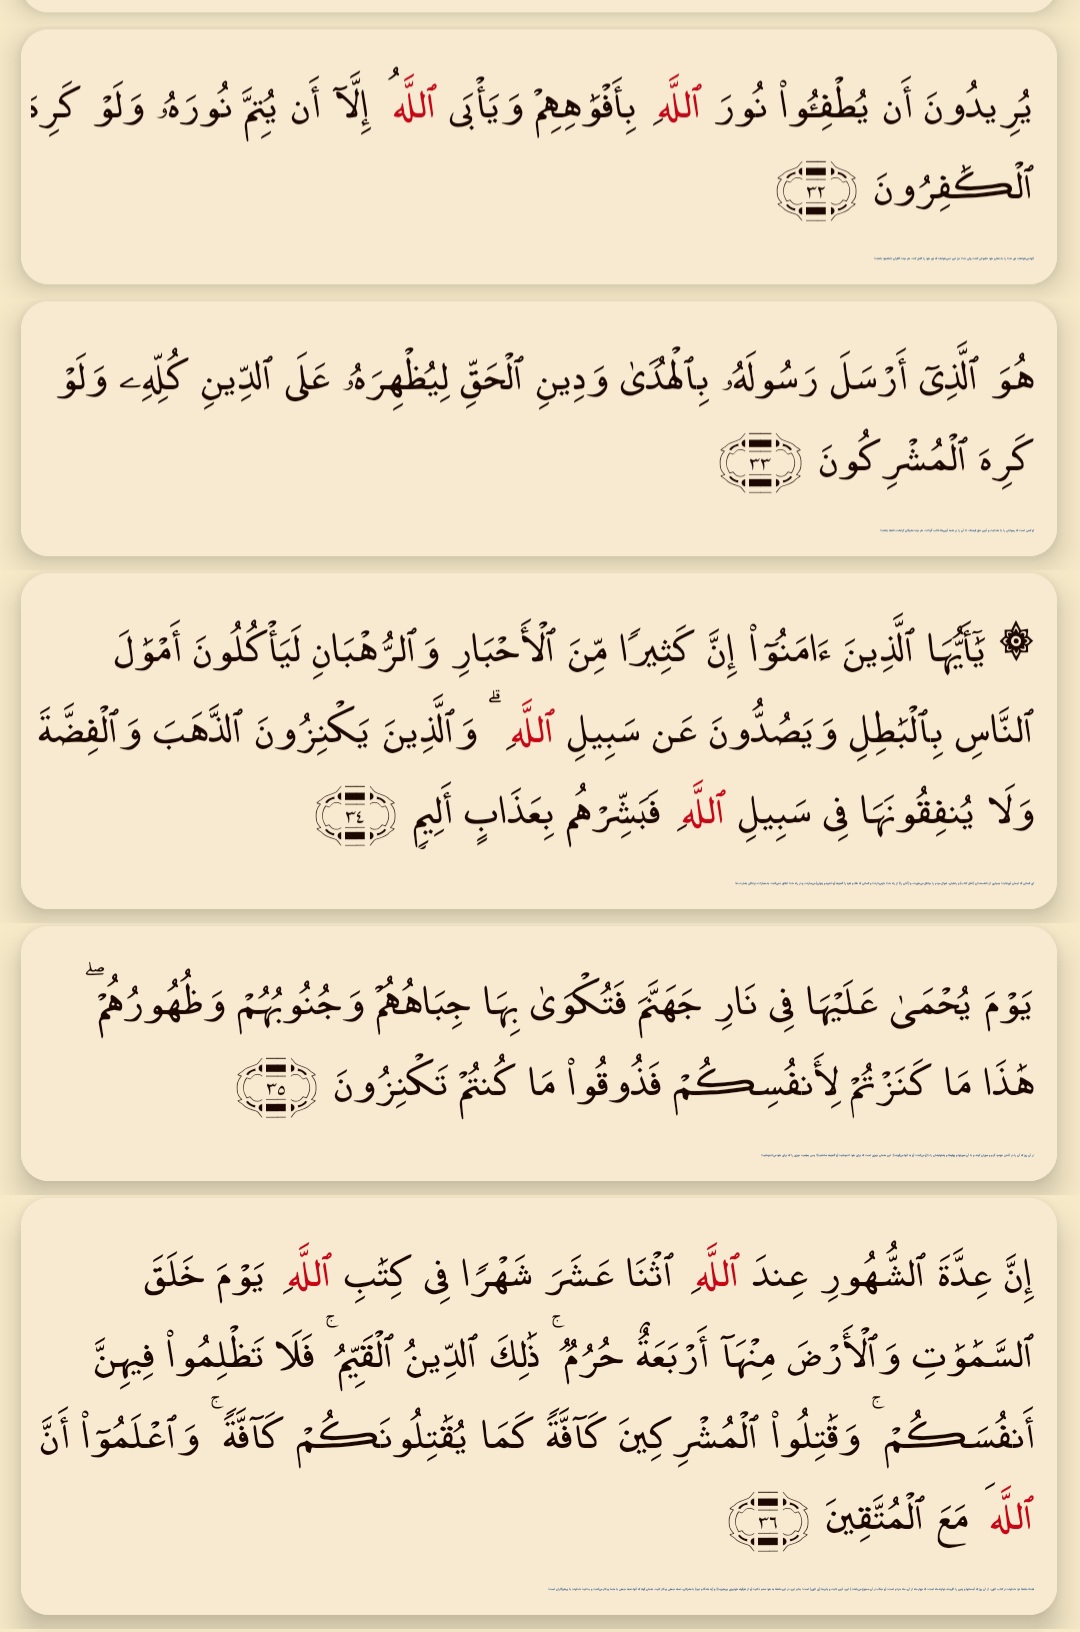 يُرِيدُونَ أَن يُطْفِـُٔوا۟ نُورَ ٱللَّهِ بِأَفْوَٰهِهِمْ وَيَأْبَى ٱللَّهُ إِلَّآ أَن يُتِمَّ نُورَهُۥ وَلَوْ كَرِهَ
ٱلْكَـٰفِرُونَ ٣٢
هُوَ ٱلَّذِىٓ أَرْسَلَ رَسُولَهُۥ بِٱلْهُدَىٰ وَدِينِ ٱلْحَقِّ لِيُظْهِرَهُۥ عَلَى ٱلدِّينِ كُلِّهِۦ وَلَوْ
كَرِهَ ٱلْمُشْرِكُونَ ٣٣
۞ يَـٰٓأَيُّهَا ٱلَّذِينَ ءَامَنُوٓا۟ إِنَّ كَثِيرًا مِّنَ ٱلْأَحْبَارِ وَٱلرُّهْبَانِ لَيَأْكُلُونَ أَمْوَٰلَ
ٱلنَّاسِ بِٱلْبَـٰطِلِ وَيَصُدُّونَ عَن سَبِيلِ ٱللَّهِ ۗ وَٱلَّذِينَ يَكْنِزُونَ ٱلذَّهَبَ وَٱلْفِضَّةَ
وَلَا يُنفِقُونَهَا فِى سَبِيلِ ٱللَّهِ فَبَشِّرْهُم بِعَذَابٍ أَلِيمٍ ٣٤
يَوْمَ يُحْمَىٰ عَلَيْهَا فِى نَارِ جَهَنَّمَ فَتُكْوَىٰ بِهَا جِبَاهُهُمْ وَجُنُوبُهُمْ وَظُهُورُهُمْ ۖ
هَـٰذَا مَا كَنَزْتُمْ لِأَنفُسِكُمْ فَذُوقُوا۟ مَا كُنتُمْ تَكْنِزُونَ ٣٥
إِنَّ عِدَّةَ ٱلشُّهُورِ عِندَ ٱللَّهِ ٱثْنَا عَشَرَ شَهْرًا فِى كِتَـٰبِ ٱللَّهِ يَوْمَ خَلَقَ
ٱلسَّمَـٰوَٰتِ وَٱلْأَرْضَ مِنْهَآ أَرْبَعَةٌ حُرُمٌ ۚ ذَٰلِكَ ٱلدِّينُ ٱلْقَيِّمُ ۚ فَلَا تَظْلِمُوا۟ فِيهِنَّ
أَنفُسَكُمْ ۚ وَقَـٰتِلُوا۟ ٱلْمُشْرِكِينَ كَآفَّةً كَمَا يُقَـٰتِلُونَكُمْ كَآفَّةً ۚ وَٱعْلَمُوٓا۟ أَنَّ
ٱللَّهَ مَعَ ٱلْمُتَّقِينَ ٣٦